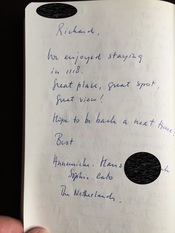 Richard,
We enjoyed staying
in 1118.
Great place, great spot,
Great view!
Hope to be back a next time.
Best
Hans
Sophie
The Netherlands.